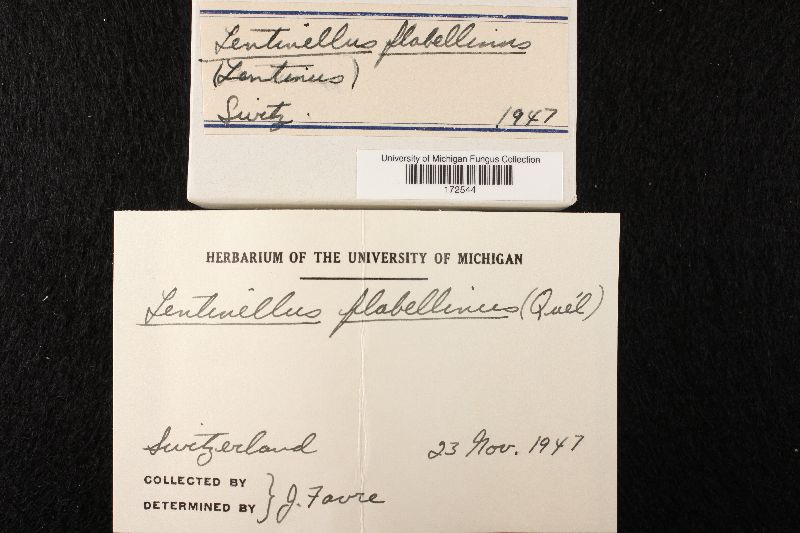 Lentinellus flabellinus
(Lentinus)
Switz. 1947
University of Michigan Fungus Collection
172544
HERBARIUM OF THE UNIVERSITY OF MICHIGAN
Lentinellus flabellinus (Quél)
Switzerland 23 Nov. 1947
COLLECTED BY
DETERMINED BY } J. Favre